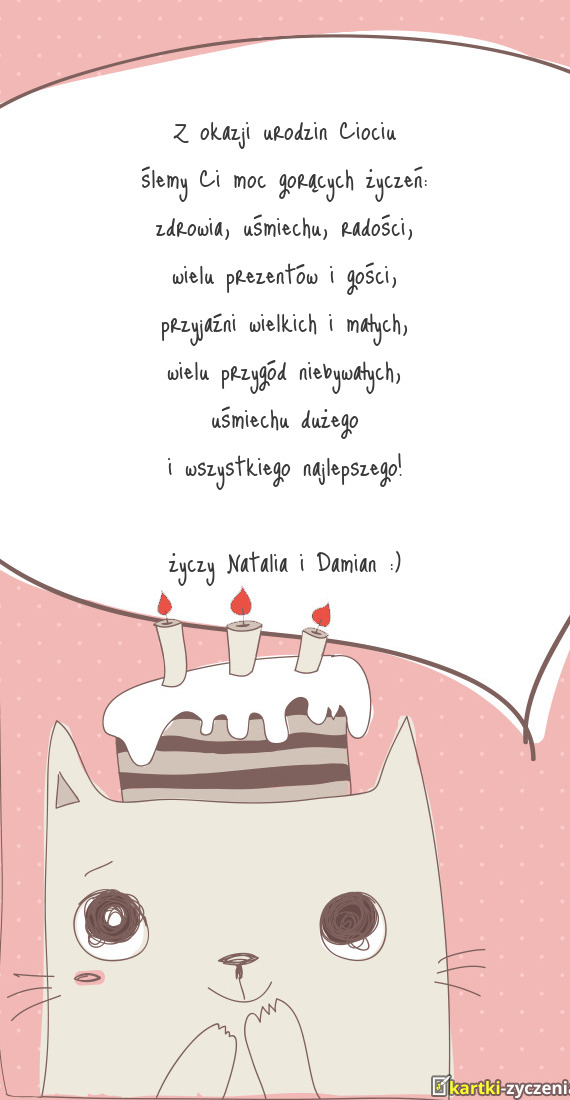 Z okazji urodzin Ciociu
ślemy Ci moc gorących życzeń:
zdrowia, uśmiechu, radości,
wielu prezentów i gości,
przyjaźni wielkich i małych,
wielu przygód niebywałych,
uśmiechu dużego
i wszystkiego najlepszego!
życzy Natalia i Damian :)
kartki-zyczenia